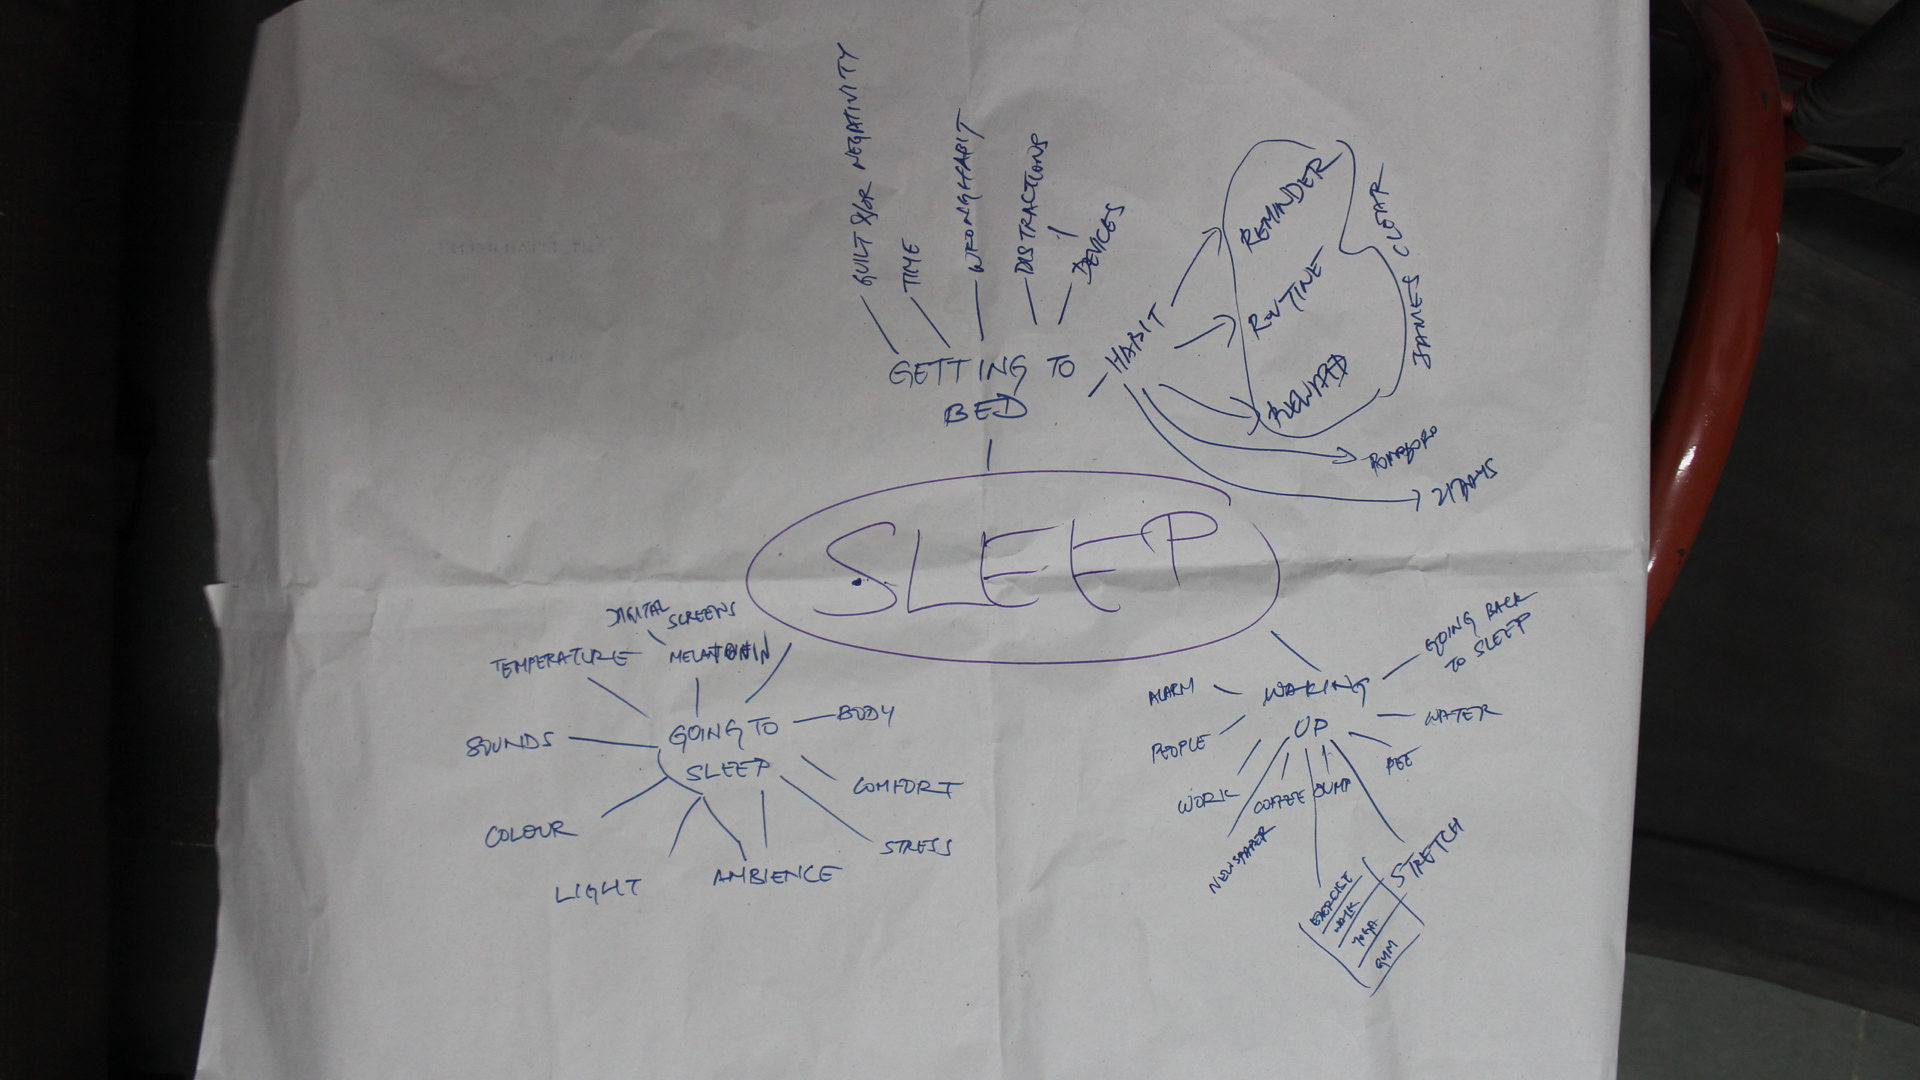 GUILT &/OR NEGATIVITY
TIME
WRONG HABIT
DISTRACTIONS
DEVICES
GETTING TO
BED
HABIT
REMINDER
ROUTINE
REWARD
JAMES CLEAR
POMODORO
21 DAYS
SLEEP
DIGITAL
SCREENS
TEMPERATURE
SOUNDS
GOING TO
SLEEP
BODY
COMFORT
COLOUR
STRESS
LIGHT
AMBIENCE
GOING BACK
TO SLEEP
ALARM
WAKING
UP
WATER
PEOPLE
PEE
WORK
COFFEE
DUMP
NEWSPAPER
STRETCH
EXERCISE
WALK
YOGA
GYM